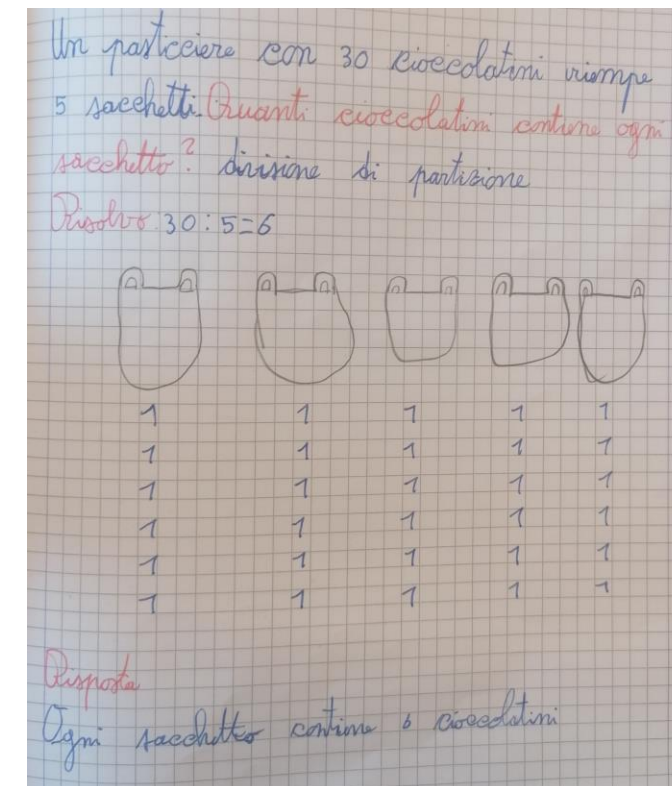 Un pasticciere con 30 cioccolatini riempe
5 sacchetti. Quanti cioccolatini contiene ogni
sacchetto? divisione di partizione
Risolvo 30:5=6
1 1 1 1 1
1 1 1 1 1
1 1 1 1 1
1 1 1 1 1
1 1 1 1 1
1 1 1 1 1
Risposta
Ogni sacchetto contiene 6 cioccolatini